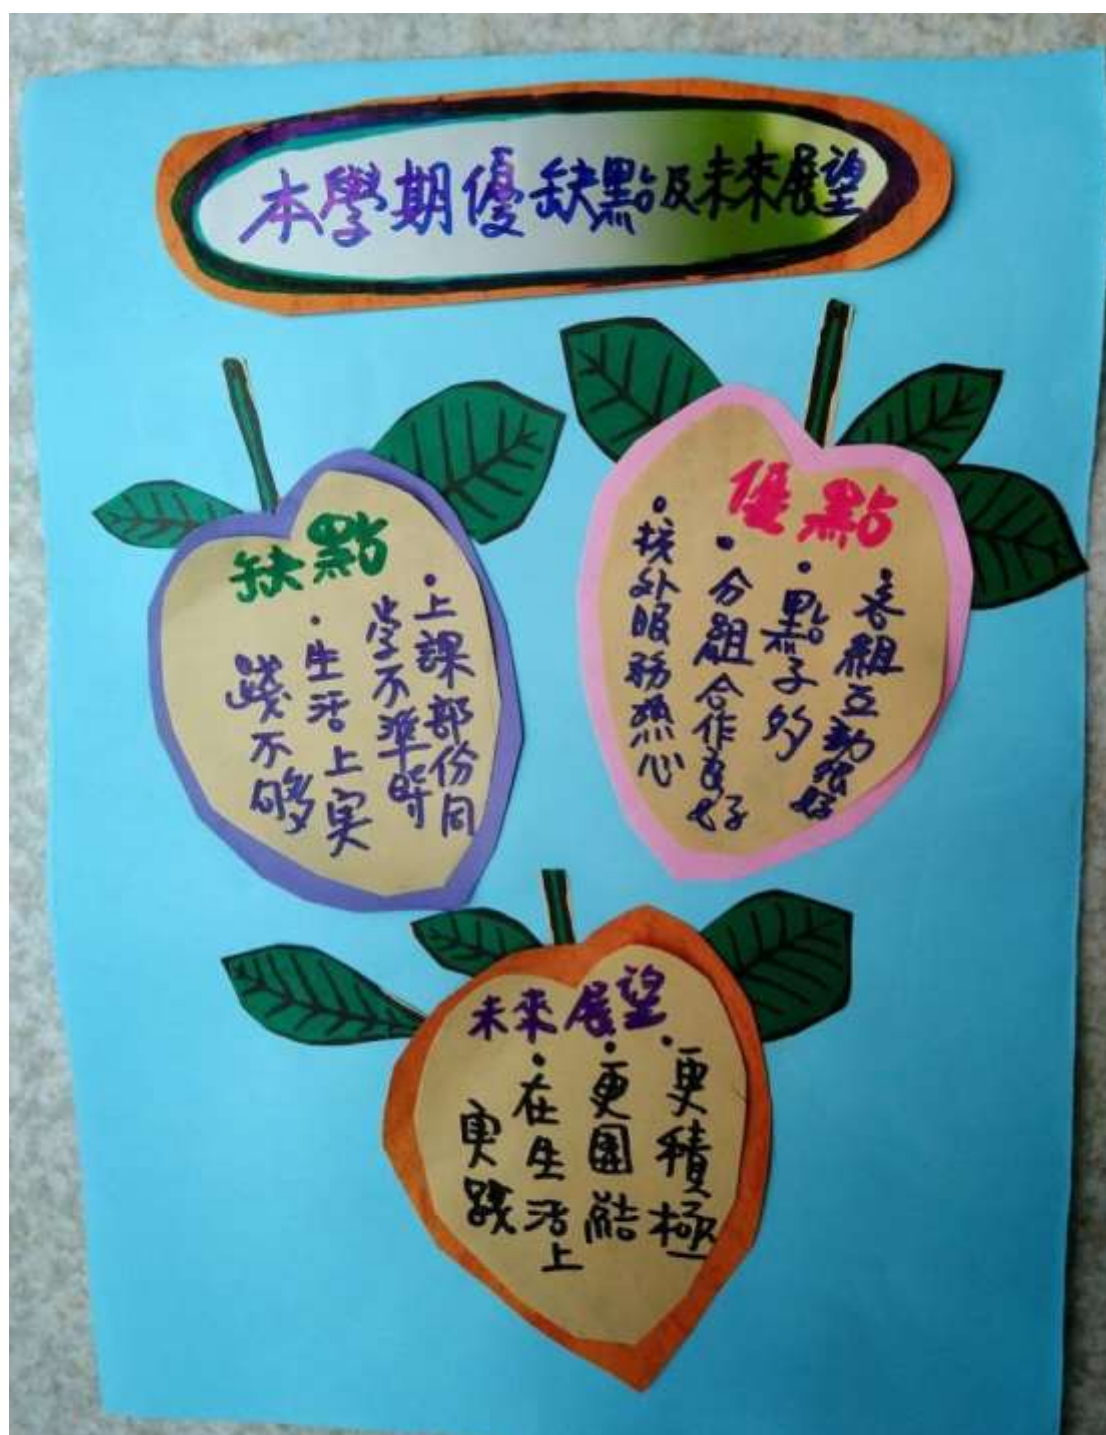 本學期優缺點及未來展望
缺點
•上課部份同
学不準時
•生活上实
踐不够
優點
•各組互動很好
•點子多
•分組合作良好
•找外服務热心
未來展望
•更積極
•更團結
•在生活上
实践